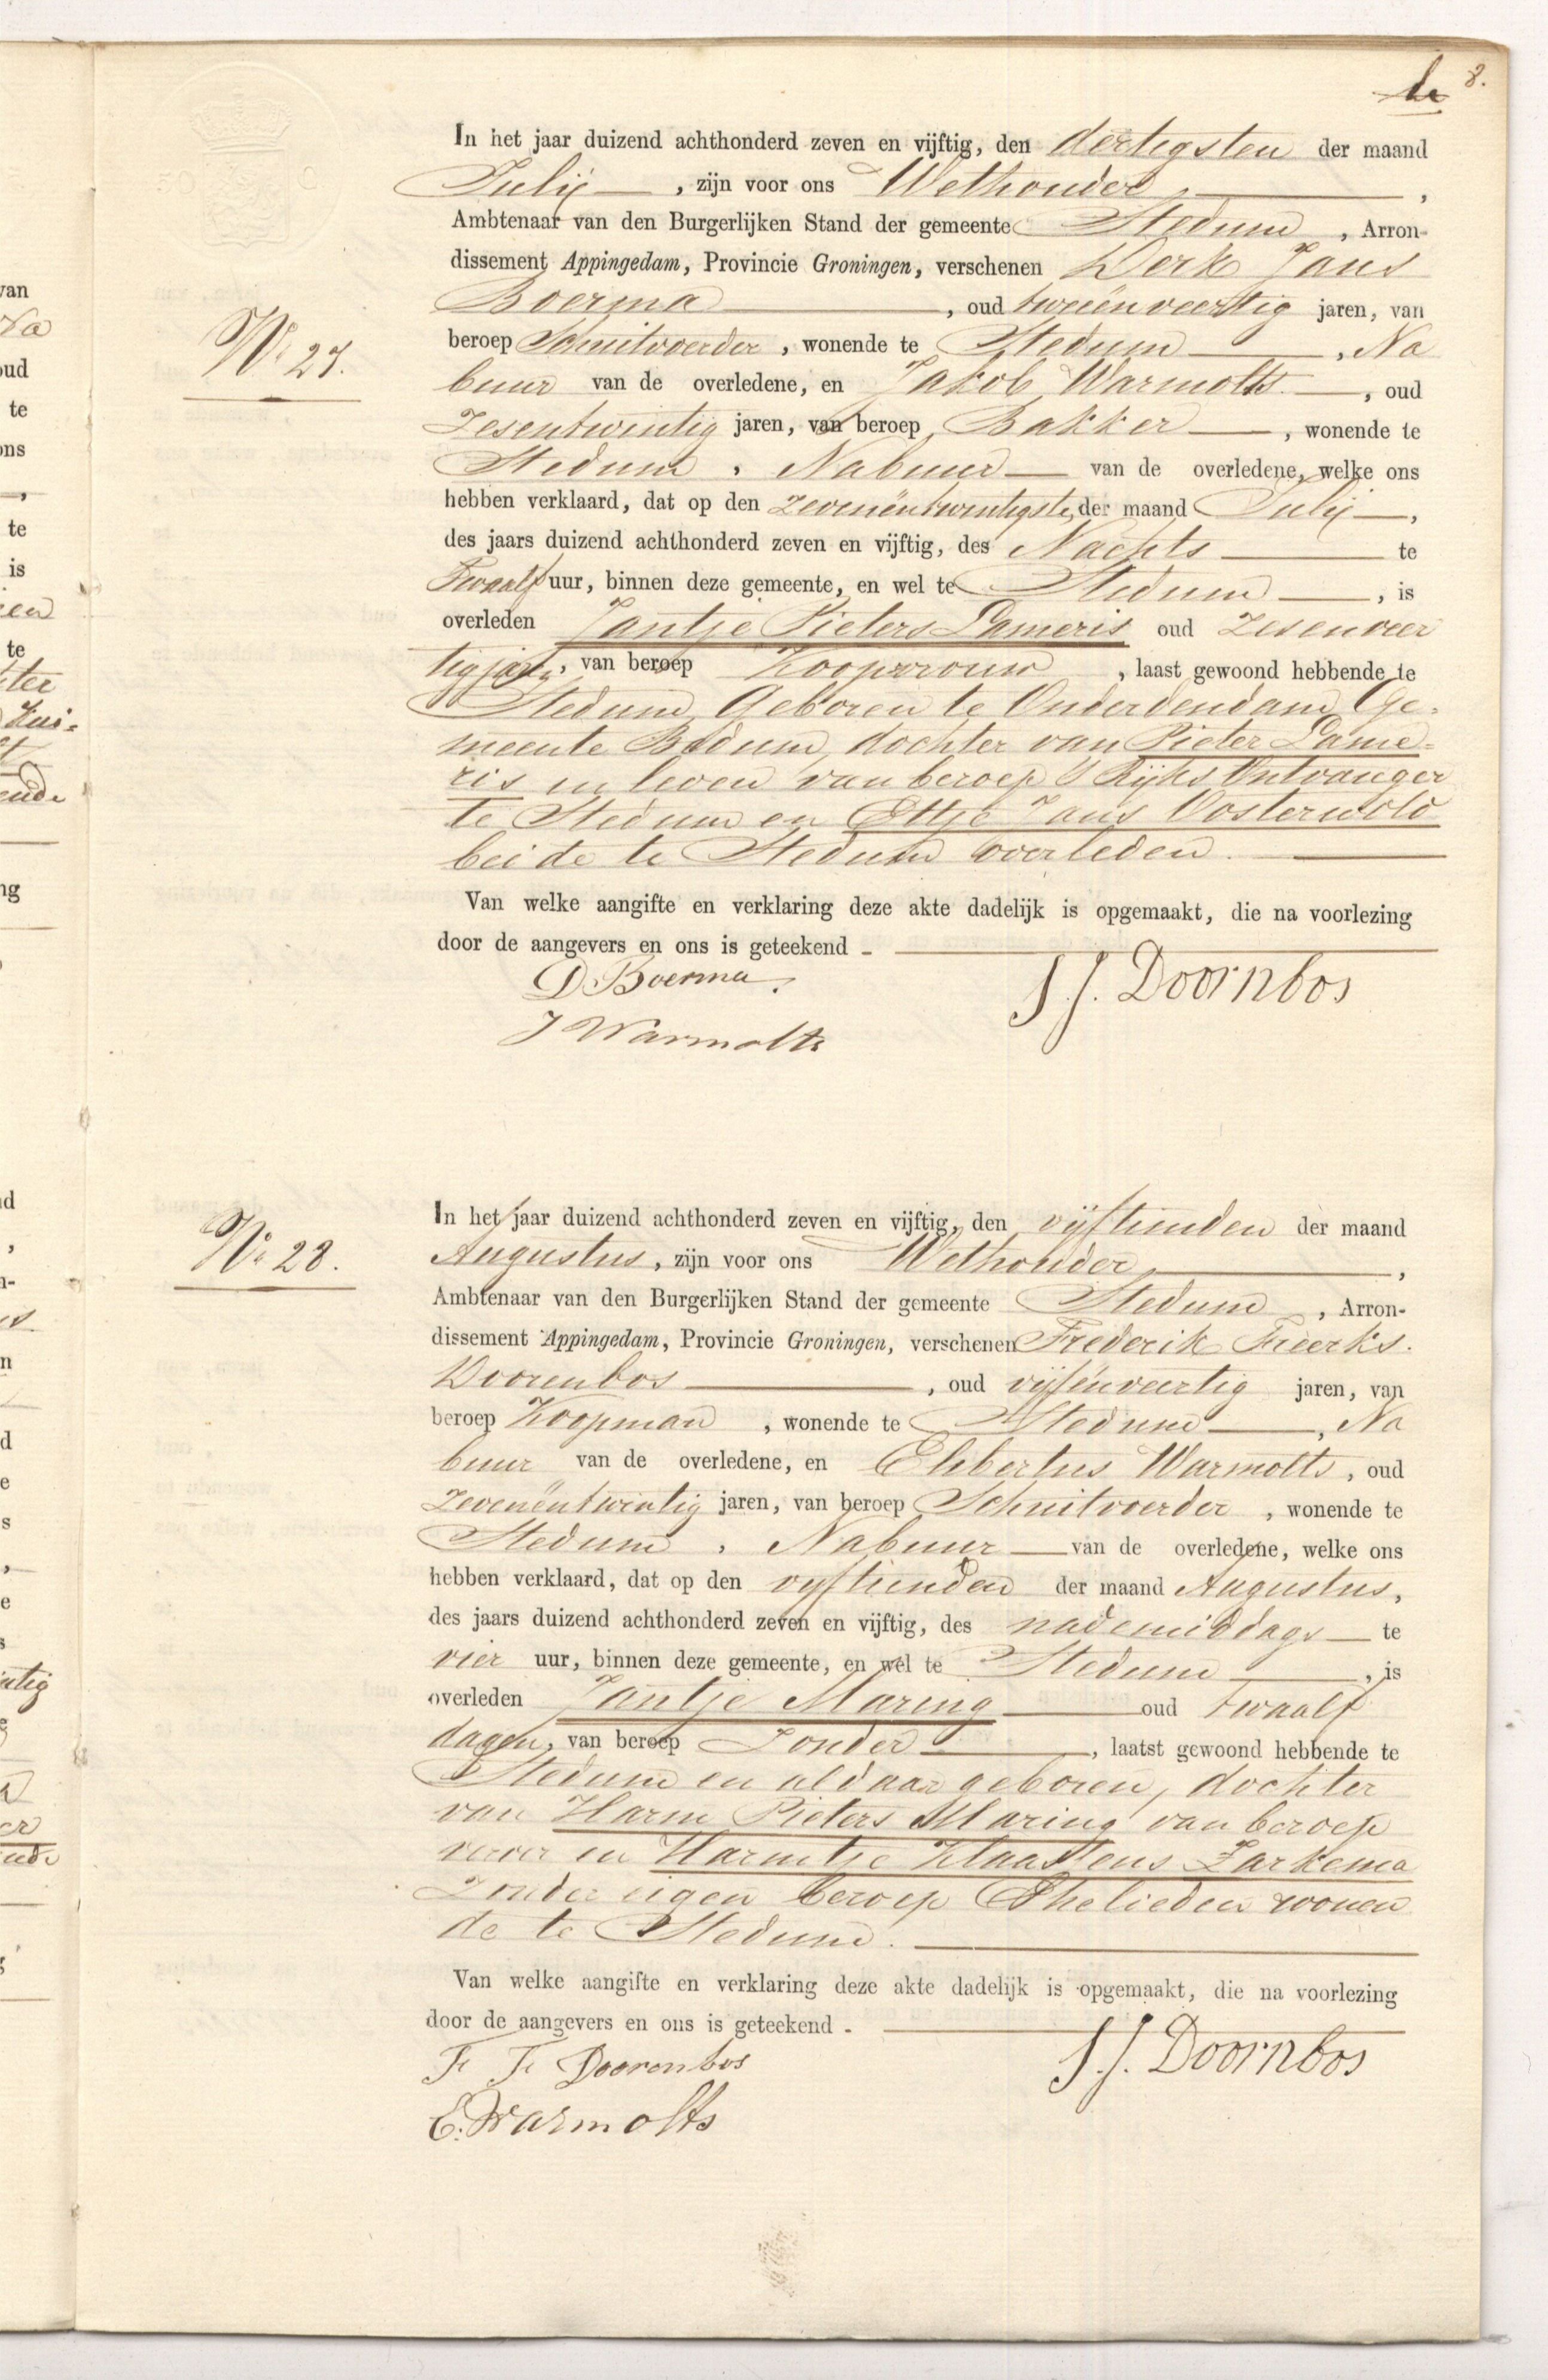 8.
In het jaar duizend achthonderd zeven en vijftig, den dertigsten der maand
Julij, zijn voor ons Wethouder,
Ambtenaar van den Burgerlijken Stand der gemeente Stedum, Arron-
dissement Appingedam, Provincie Groningen, verschenen Derk Jans
Boerma, oud tweeënveertig jaren, van
No 27.
beroep Schuitvoerder, wonende te Stedum, Na
buur van de overledene, en Jakob Warmolts, oud
Zesentwintig jaren, van beroep Bakker, wonende te
Stedum, Nabuur van de overledene, welke ons
hebben verklaard, dat op den zevenëntwintigste der maand Julij,
des jaars duizend achthonderd zeven en vijftig, des Nachts te
Twaalf uur, binnen deze gemeente, en wel te Stedum, is
overleden Jantje Pieters Dameris oud Zesenveer
tig jaar, van beroep Koopvrouw, laast gewoond hebbende te
Stedum Geboren te Onderdendam Ge-
meente Bedum, dochter van Pieter Dame-
ris in leven van beroep Rijks Ontvanger
te Stedum en Ettje Jans Oosterwold
beide te Stedum overleden.
Van welke aangifte en verklaring deze akte dadelijk is opgemaakt, die na voorlezing
door de aangevers en ons is geteekend -
D Boerma.
J. J. Doornbos
J Warmolts
In het jaar duizend achthonderd zeven en vijftig, den vijftienden der maand
No 28.
Augustus, zijn voor ons Wethouder,
Ambtenaar van den Burgerlijken Stand der gemeente Stedum, Arron-
dissement Appingedam, Provincie Groningen, verschenen Frederik Freerks.
Doorenbos, oud vijfënveertig jaren, van
beroep Koopman, wonende te Stedum, Na
buur van de overledene, en Elibertus Warmolts, oud
Zevenëntwintig jaren, van beroep Schuitvoerder, wonende te
Stedum, Nabuur van de overledene, welke ons
hebben verklaard, dat op den vijftienden der maand Augustus,
des jaars duizend achthonderd zeven en vijftig, des nademiddags te
vier uur, binnen deze gemeente, en wel te Stedum, is
overleden Jantje Maring oud twaalf
dagen, van beroep Zonder, laatst gewoond hebbende te
Stedum en aldaar geboren, dochter
van Harm Pieters Maring van beroep
verver en Harmtje Klaassens Zarkema
Zonder eigen beroep Ehelieden wonen
de te Stedum.
Van welke aangifte en verklaring deze akte dadelijk is opgemaakt, die na voorlezing
door de aangevers en ons is geteekend -
F. F. Doorenbos
J. J. Doornbos
E. Warmolts